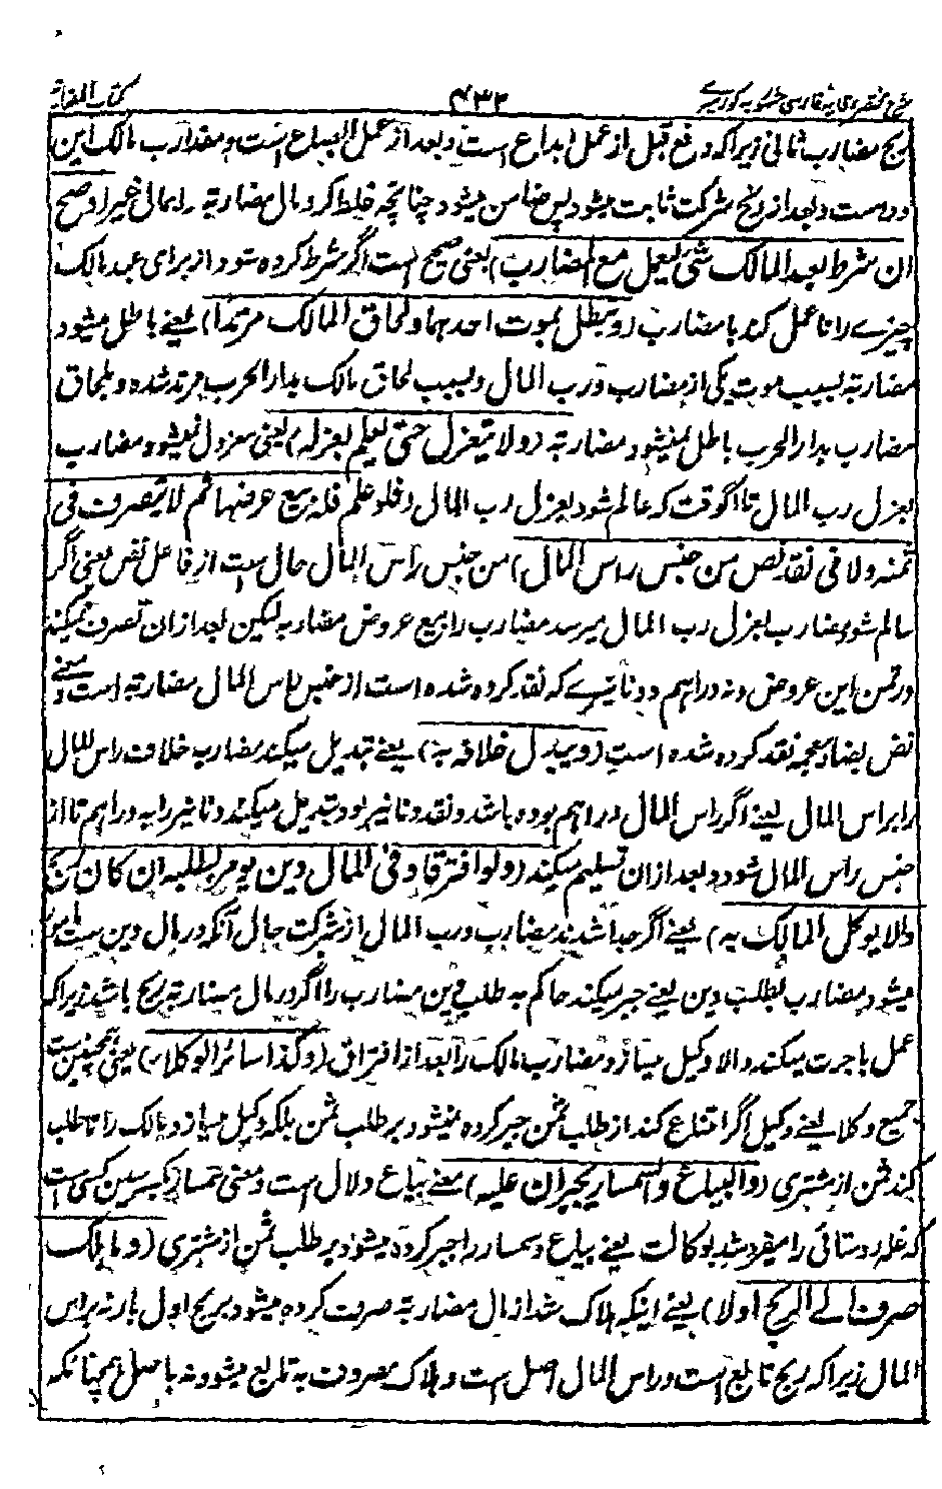 شرح مختصر وقایه فارسی مشهور به کور میری ۴۳۲ کتاب المضاربة
ربح مضارب ثانی زیراکه دفع قبل از عمل ایداع است و بعد از عمل ابضاع است و مضارب مالک این
دو است و بعد از ربح شرکت ثابت میشود پس ضامن میشود چنانچه خلط کرد مال مضاربة را بمال غیر (وصح
ان شرط لعبد المالک شئ لیعمل مع المضارب) یعنی صحیح است اگر شرط کرده شود از برای عبد مالک
چیزے را تا عمل کند با مضارب (و یبطل بموت احدهما ولحاق المالک مرتدا) یعنے باطل میشود
مضاربة بسبب موت یکی از مضارب و رب المال و بسبب لحاق مالک بدار الحرب مرتد شده و بلحاق
مضارب بدار الحرب باطل نمیشود مضاربة (ولا ینعزل حتی یعلم بعزله) یعنی معزول نمیشود مضارب
بعزل رب المال تا آنوقت که عالم شود بعزل رب المال (فلو علم فله بیع عرضها ثم لا یتصرف فی
ثمنه ولا فی نقد نض من جنس راس المال) من جنس راس المال حال است از فاعل نض یعنی اگر
عالم شود مضارب بعزل رب المال میرسد مضارب را بیع عروض مضاربة لیکن بعد از ان تصرف نمیکند
در ثمن این عروض و نه دراهم و دنانیرے که نقد کرده شده است از جنس راس المال مضاربة است و معنے
نض بضاد معجمه نقد کرده شده است (و یبدل خلافه به) یعنے تبدیل میکند مضارب خلاف راس المال
را براس المال یعنے اگر راس المال دراهم بوده باشد و نقد دنانیر بود تبدیل میکند دنانیر را به دراهم تا از
جنس راس المال شود و بعد از ان تسلیم میکند (ولو افترقا و فی المال دین یومر بطلبه ان کان ربح
والا یوکل المالک به) یعنے اگر جدا شدند مضارب و رب المال از شرکت حال آنکه در مال دین است امر
میشود مضارب بطلب دین یعنے جبر میکند حاکم به طلب دین مضارب را اگر در مال مضاربة ربح باشد زیراکه
عمل باجرت میکند و الا وکیل میسازد مضارب مالک را بعد از افتراق (وکذا سائر الوکلاء) یعنی همچنین است
جمیع وکلا یعنے وکیل اگر امتناع کند از طلب ثمن جبر کرده نمیشود بر طلب ثمن بلکه وکیل میسازد مالک را تا طلب
کند ثمن از مشتری (والبیاع والسمسار یجبران علیه) معنے بیاع دلال است و معنی سمسار بکسر سین کسی است
که غله روستائی را میفروشد بوکالت یعنے بیاع و سمسار را جبر کرده میشود بر طلب ثمن از مشتری (وما هلک
صرف الے الربح اولا) یعنے اینکه هلاک شد از مال مضاربة صرف کرده میشود بربح اول بار نه براس
المال زیراکه ربح تابع است و راس المال اصل است و هلاک مصروف به تابع میشود نه باصل همچنانکه